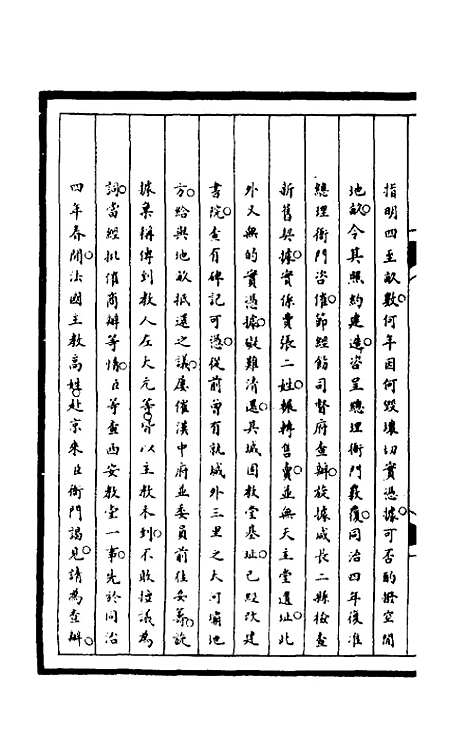 指明四至畝數何年因何毀壞切實憑據可否酌撥空閒
地畝令其照約建造咨呈總理衙門覈覆同治四年復准
總理衙門咨催節經飭司督府查辦旋據咸長二縣檢查
新舊契據實係賣張二姓輾轉售賣並無天主堂遺址此
外又無的實憑據礙難清還其城固教堂基址已經改建
書院查有碑記可憑從前曾有就城外三里之大河壩地
方給與地畝抵還之議屢催漢中府並委員前往妥籌旋
據稟稱傳到教人左大元等皆以主教未到不敢擅議為
詞當經批催商辦等情臣等查西安教堂一事先於同治
四年春間法國主教高姓赴京來臣衙門謁見請為查辦